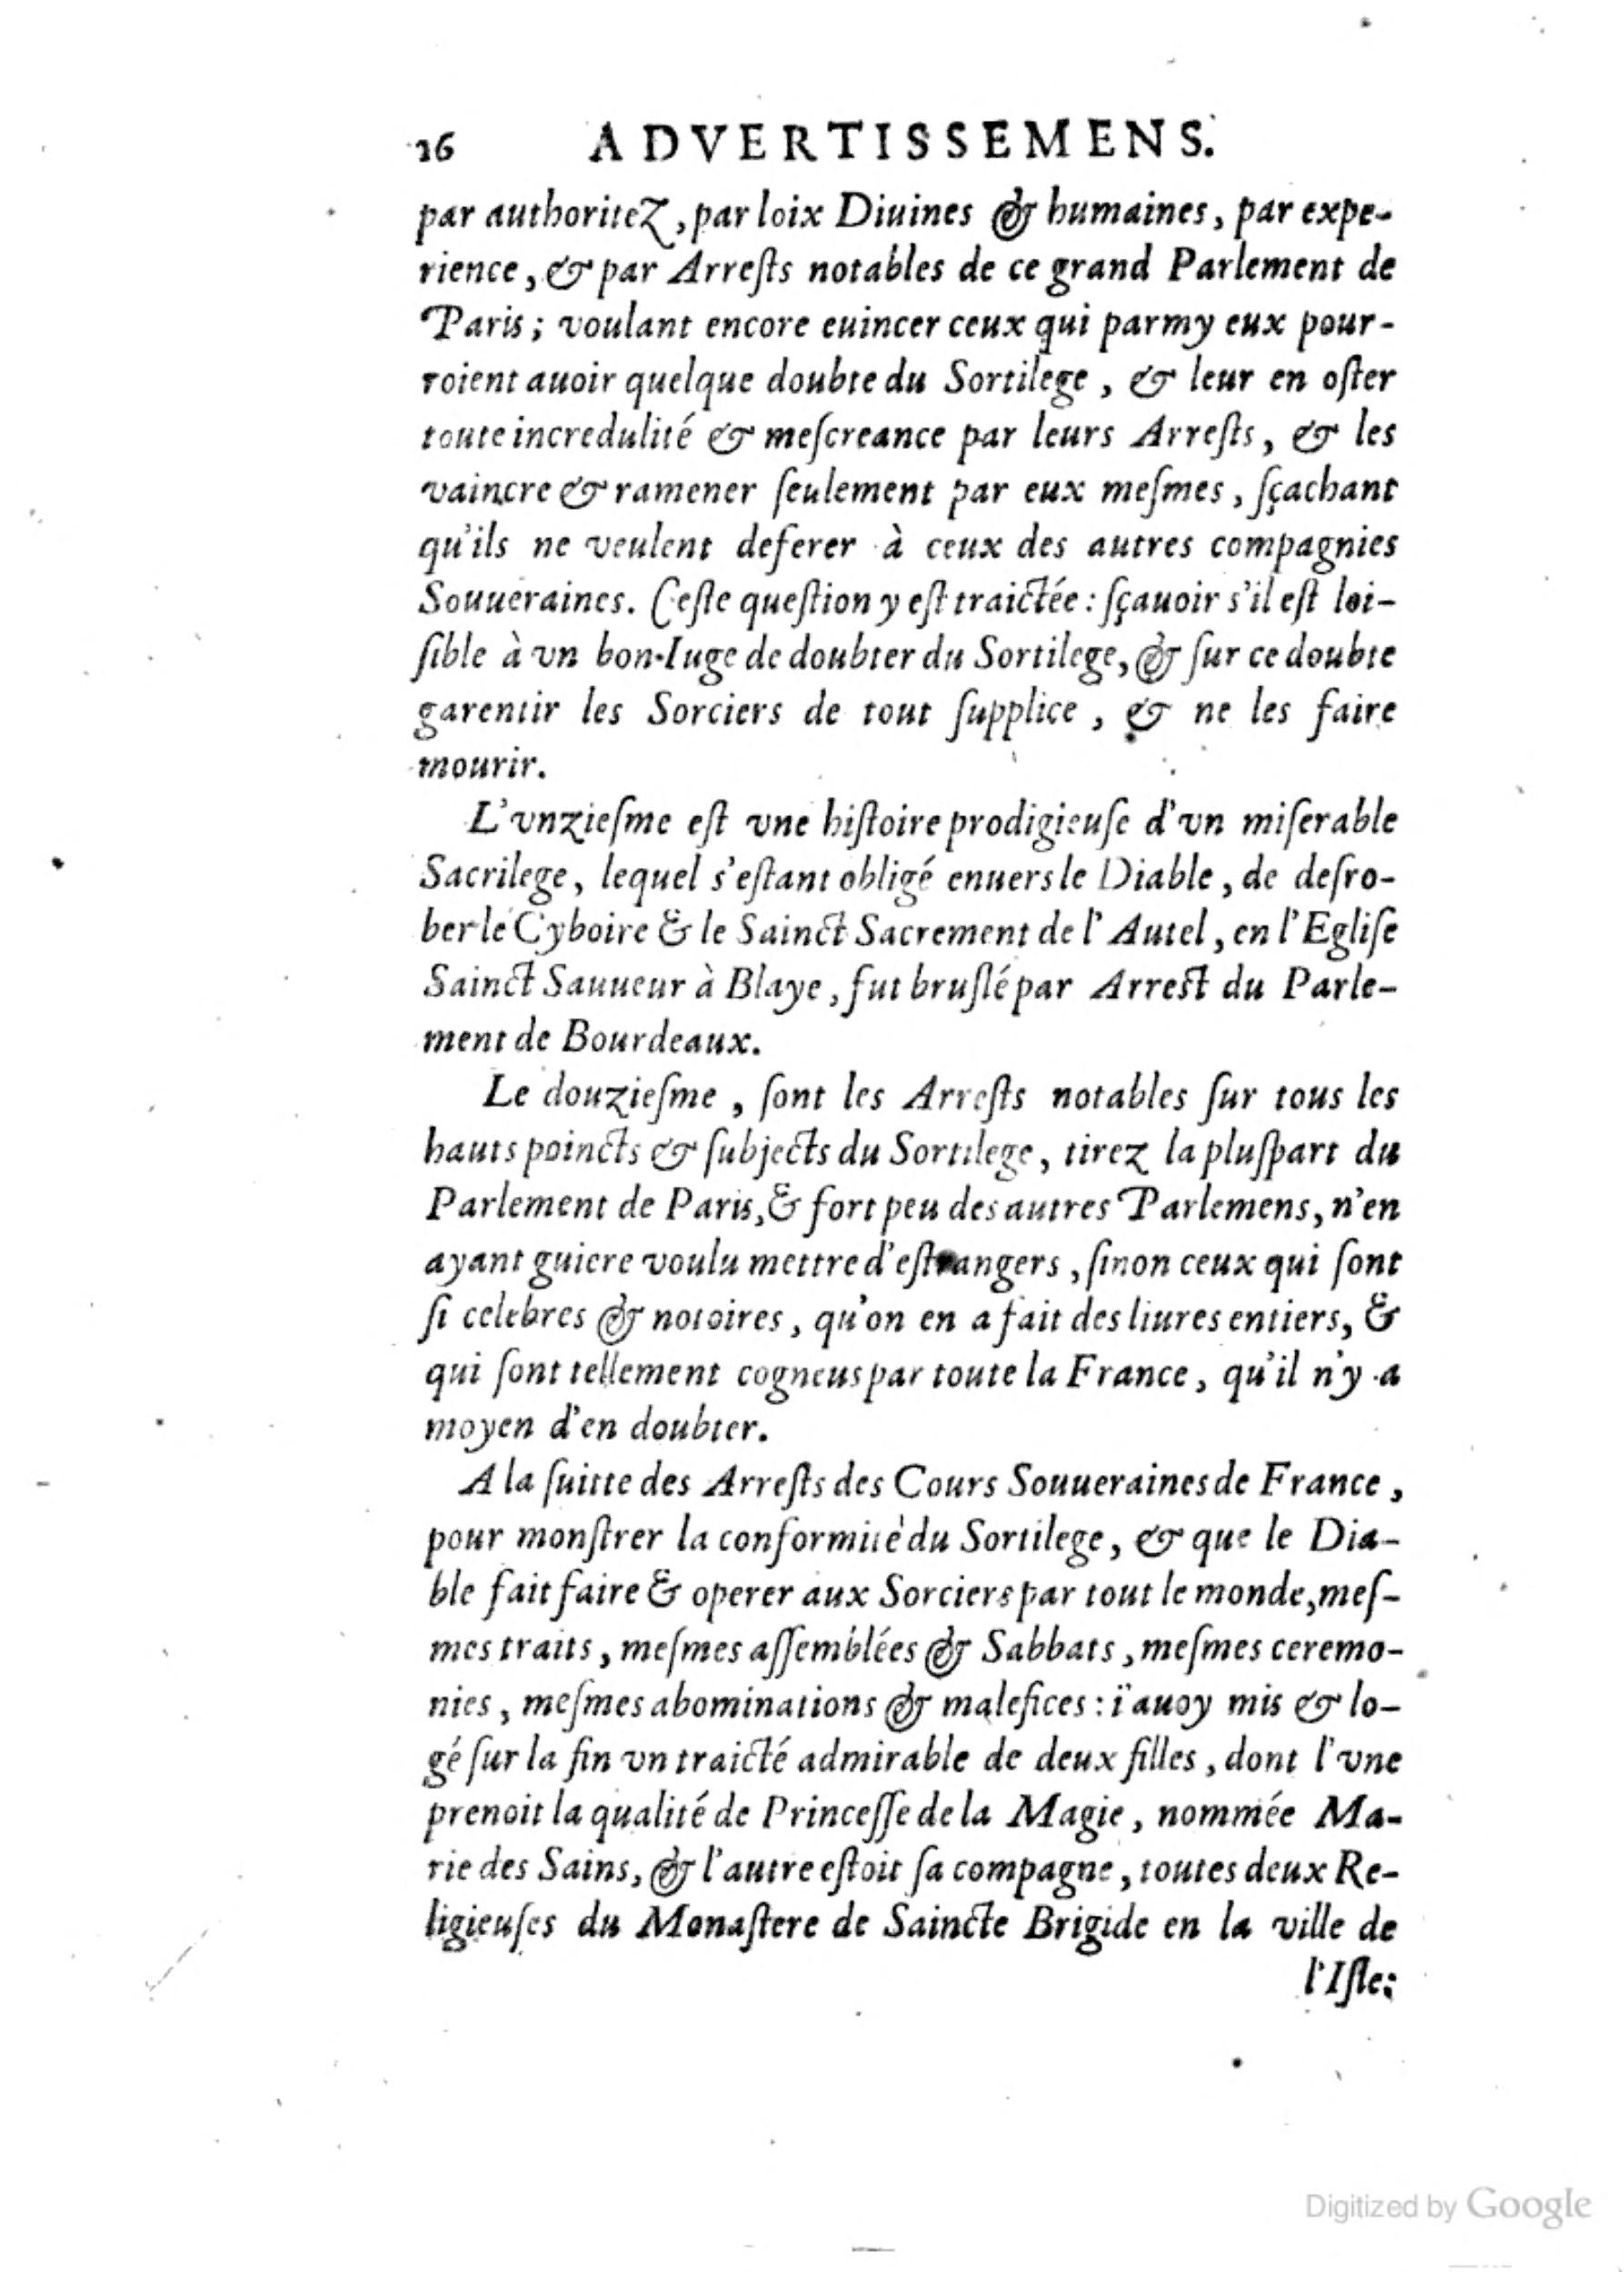 16 ADVERTISSEMENS.
par authoritez, par loix Diuines & humaines, par expe-
rience, & par Arreſts notables de ce grand Parlement de
Paris; voulant encore euincer ceux qui parmy eux pour-
roient auoir quelque doubte du Sortilege, & leur en oſter
toute incredulité & meſcreance par leurs Arreſts, & les
vaincre & ramener ſeulement par eux meſmes, ſçachant
qu'ils ne veulent deferer à ceux des autres compagnies
Souueraines. Ceſte queſtion y eſt traictée: ſçauoir s'il eſt loi-
ſible à vn bon Iuge de doubter du Sortilege, & ſur ce doubte
garentir les Sorciers de tout ſupplice, & ne les faire
mourir.
L'vnzieſme eſt vne hiſtoire prodigieuſe d'vn miſerable
Sacrilege, lequel s'eſtant obligé enuers le Diable, de deſro-
ber le Cyboire & le Sainct Sacrement de l'Autel, en l'Egliſe
Sainct Sauueur à Blaye, fut bruſlé par Arreſt du Parle-
ment de Bourdeaux.
Le douzieſme, ſont les Arreſts notables ſur tous les
hauts poincts & ſubjects du Sortilege, tirez la pluſpart du
Parlement de Paris, & fort peu des autres Parlemens, n'en
ayant guiere voulu mettre d'eſtrangers, ſinon ceux qui ſont
ſi celebres & notoires, qu'on en a fait des liures entiers, &
qui ſont tellement cogneus par toute la France, qu'il n'y a
moyen d'en doubter.
A la ſuitte des Arreſts des Cours Souueraines de France,
pour monſtrer la conformité du Sortilege, & que le Dia-
ble fait faire & operer aux Sorciers par tout le monde, meſ-
mes traits, meſmes aſſemblées & Sabbats, meſmes ceremo-
nies, meſmes abominations & malefices: i'auoy mis & lo-
gé ſur la fin vn traicté admirable de deux filles, dont l'vne
prenoit la qualité de Princeſſe de la Magie, nommée Ma-
rie des Sains, & l'autre eſtoit ſa compagne, toutes deux Re-
ligieuſes du Monaſtere de Saincte Brigide en la ville de
l'Iſle:
Digitized by Google